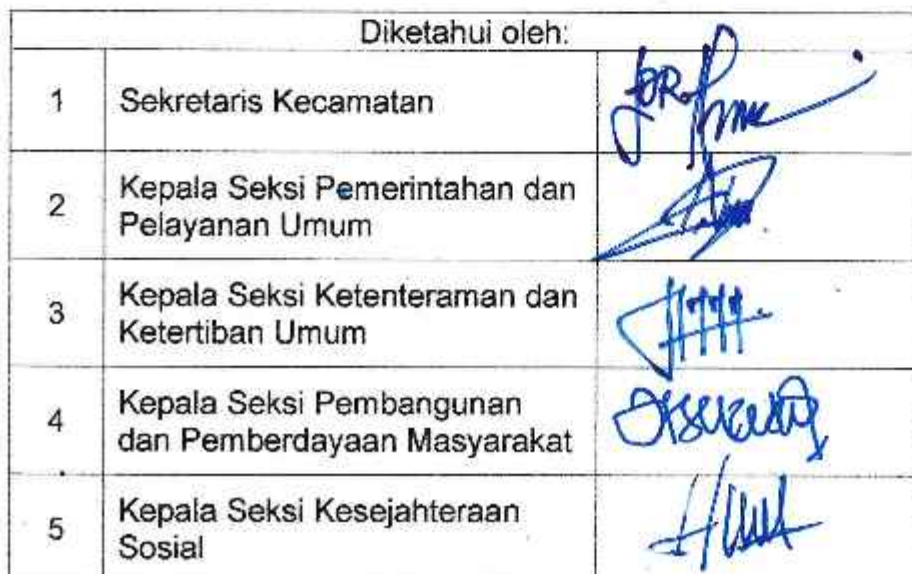 Diketahui oleh:
1 Sekretaris Kecamatan
2 Kepala Seksi Pemerintahan dan
Pelayanan Umum
3 Kepala Seksi Ketenteraman dan
Ketertiban Umum
4 Kepala Seksi Pembangunan
dan Pemberdayaan Masyarakat
5 Kepala Seksi Kesejahteraan
Sosial